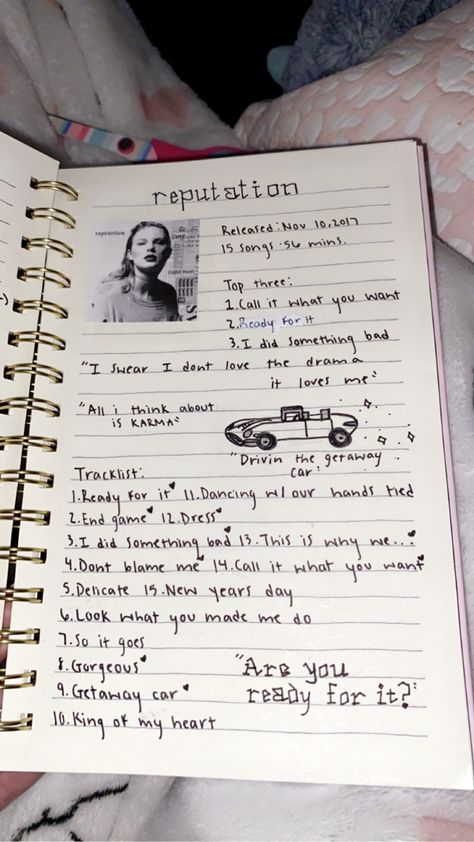 reputation
reputation
Released: Nov 10, 2017
15 songs · 56 mins.
Top three:
1. Call it what you want
2. Ready For it
3. I did something bad
"I swear I dont love the drama
it loves me"
"All i think about
is KARMA"
"Drivin the getaway
car"
Tracklist:
1. Ready for it♥ 11. Dancing w/ our hands tied
2. End game♥ 12. Dress♥
3. I did something bad♥ 13. This is why we...♥
4. Dont blame me♥ 14. Call it what you want♥
5. Delicate 15. New years day
6. Look what you made me do
7. So it goes
8. Gorgeous♥
9. Getaway car♥
10. King of my heart
"Are you
ready for it?"